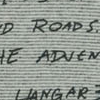 D ROADS.
HE ADVEN
HANGAR